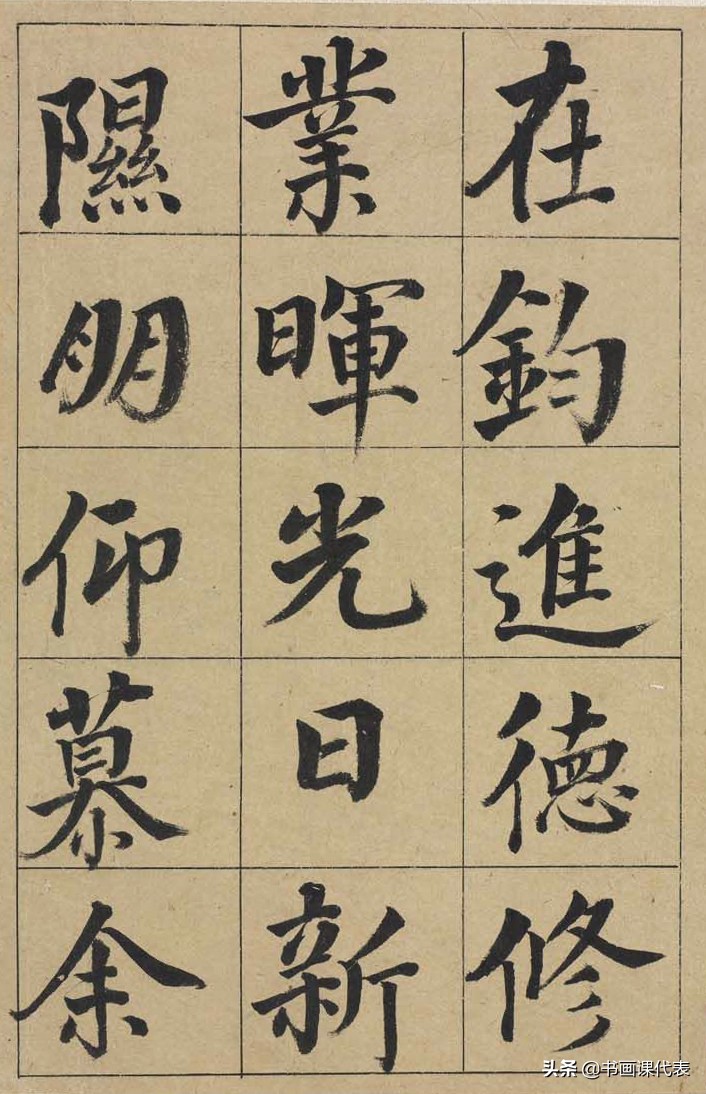 在鈞進德修
業暉光日新
隰朋仰慕余
头条 @书画课代表